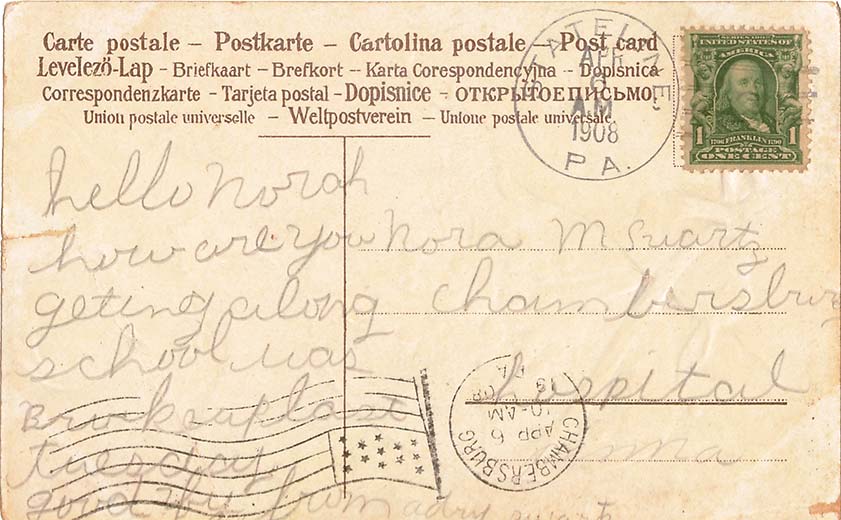 Carte postale – Postkarte – Cartolina postale – Post card
Levelező-Lap – Briefkaart – Brefkort – Karta Corespondencyjna – Dopisnica
Correspondenzkarte – Tarjeta postal – Dopisnice – ОТКРЫТОЕПИСЬМО.
Union postale universelle – Weltpostverein – Unione postale universale.
STATELINE,
APR
6
AM
1908
PA.
SERIES 1902
UNITED STATES OF
AMERICA
1 1
1706 FRANKLIN 1790
POSTAGE
ONE CENT
hello Norah
how are you
geting along
school was
Bruken up last
tuesday
good by from adry swartz
Nora M Swartz
Chambersburg
hospital
CHAMBERSBURG
APR 6
10-AM
PA